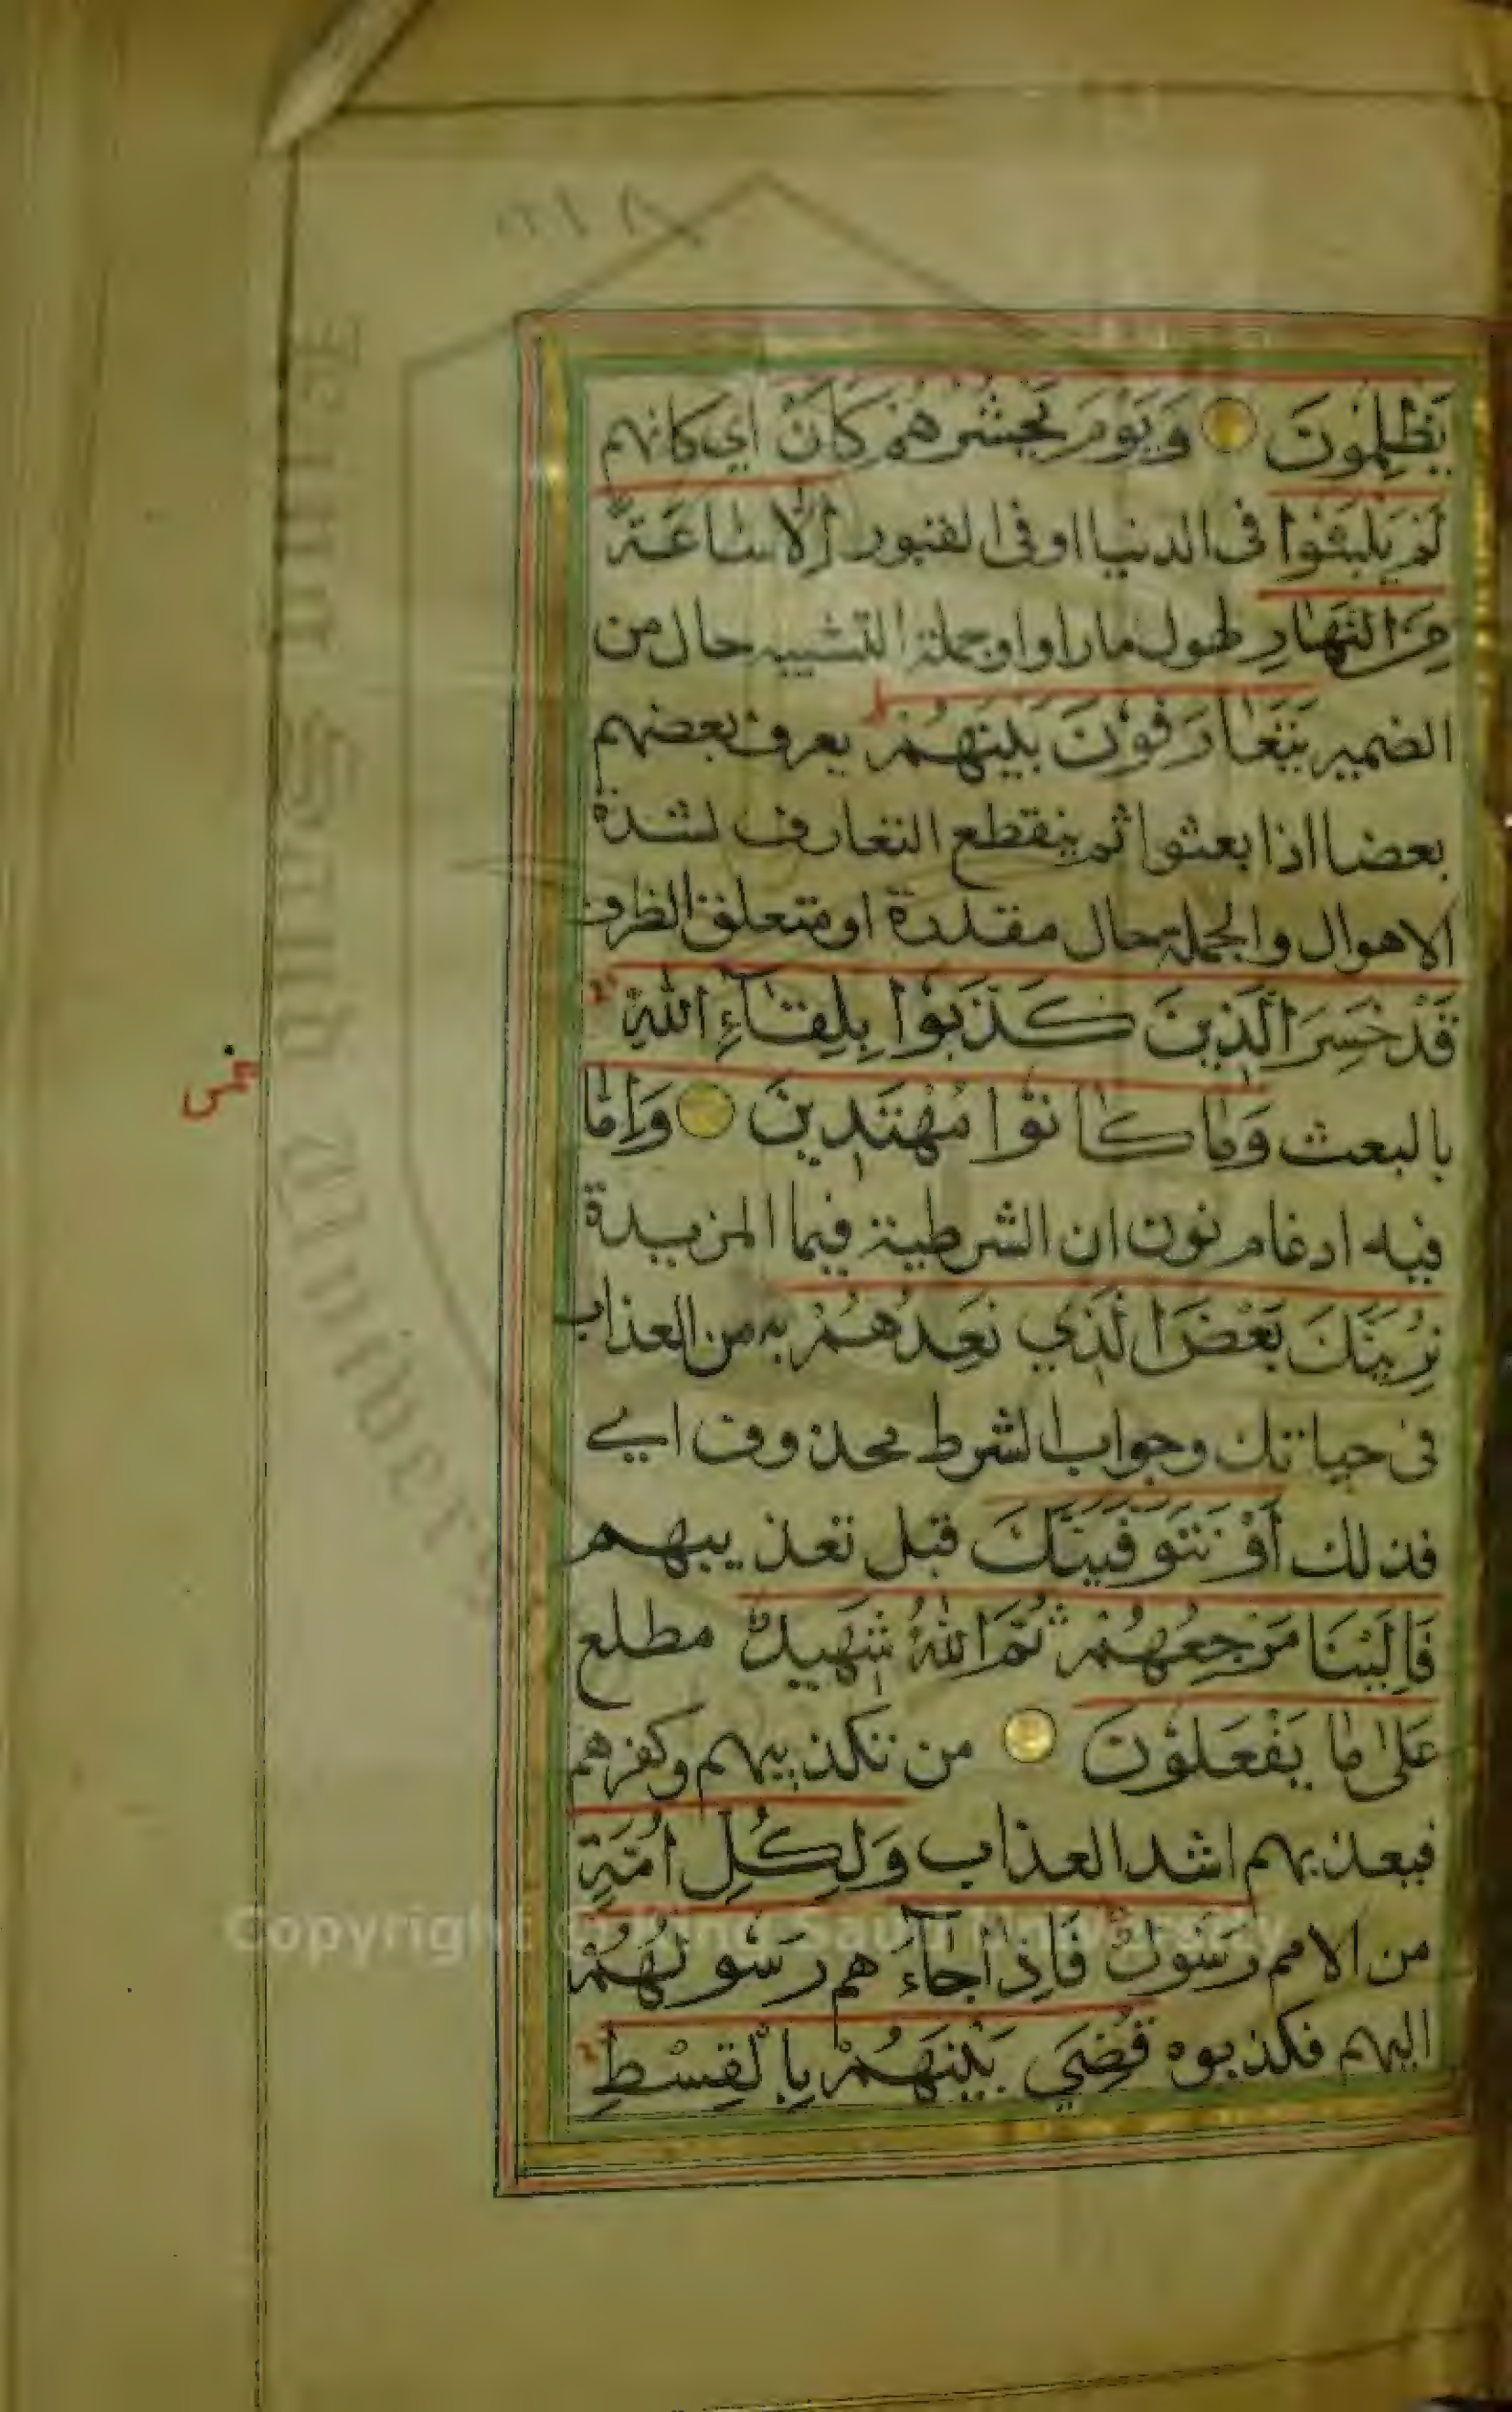 يَظْلِمُونَ وَيَوْمَ يَحْشُرُهُمْ كَأَنْ اي كانهم
لَمْ يَلْبَثُوا فى الدنيا او فى القبور إِلَّا سَاعَةً
مِنَ النَّهَارِ لهول ما راوا وجملة التشبيه حال من
الضمير يَتَعَارَفُونَ بَيْنَهُمْ يعرف بعضهم
بعضا اذا بعثوا ثم ينقطع التعارف لشدة
الاهوال والجملة حال مقدرة او متعلق الظرف
قَدْ خَسِرَ الَّذِينَ كَذَّبُوا بِلِقَاءِ اللهِ
بالبعث وَمَا كَانُوا مُهْتَدِينَ وَإِمَّا
فيه ادغام نون ان الشرطية فيما المزيدة
نُرِيَنَّكَ بَعْضَ الَّذِي نَعِدُهُمْ به من العذاب
فى حياتك وجواب الشرط محذوف اي
فذلك أَوْ نَتَوَفَّيَنَّكَ قبل تعذيبهم
فَإِلَيْنَا مَرْجِعُهُمْ ثُمَّ اللهُ شَهِيدٌ مطلع
عَلَى مَا يَفْعَلُونَ من تكذيبهم وكفرهم
فيعذبهم اشد العذاب وَلِكُلِّ أُمَّةٍ
من الامم رَسُولٌ فَإِذَا جَاءَهم رَسُولُهُمْ
اليهم فكذبوه قُضِيَ بَيْنَهُمْ بِالْقِسْطِ
Copyright © King Saud University